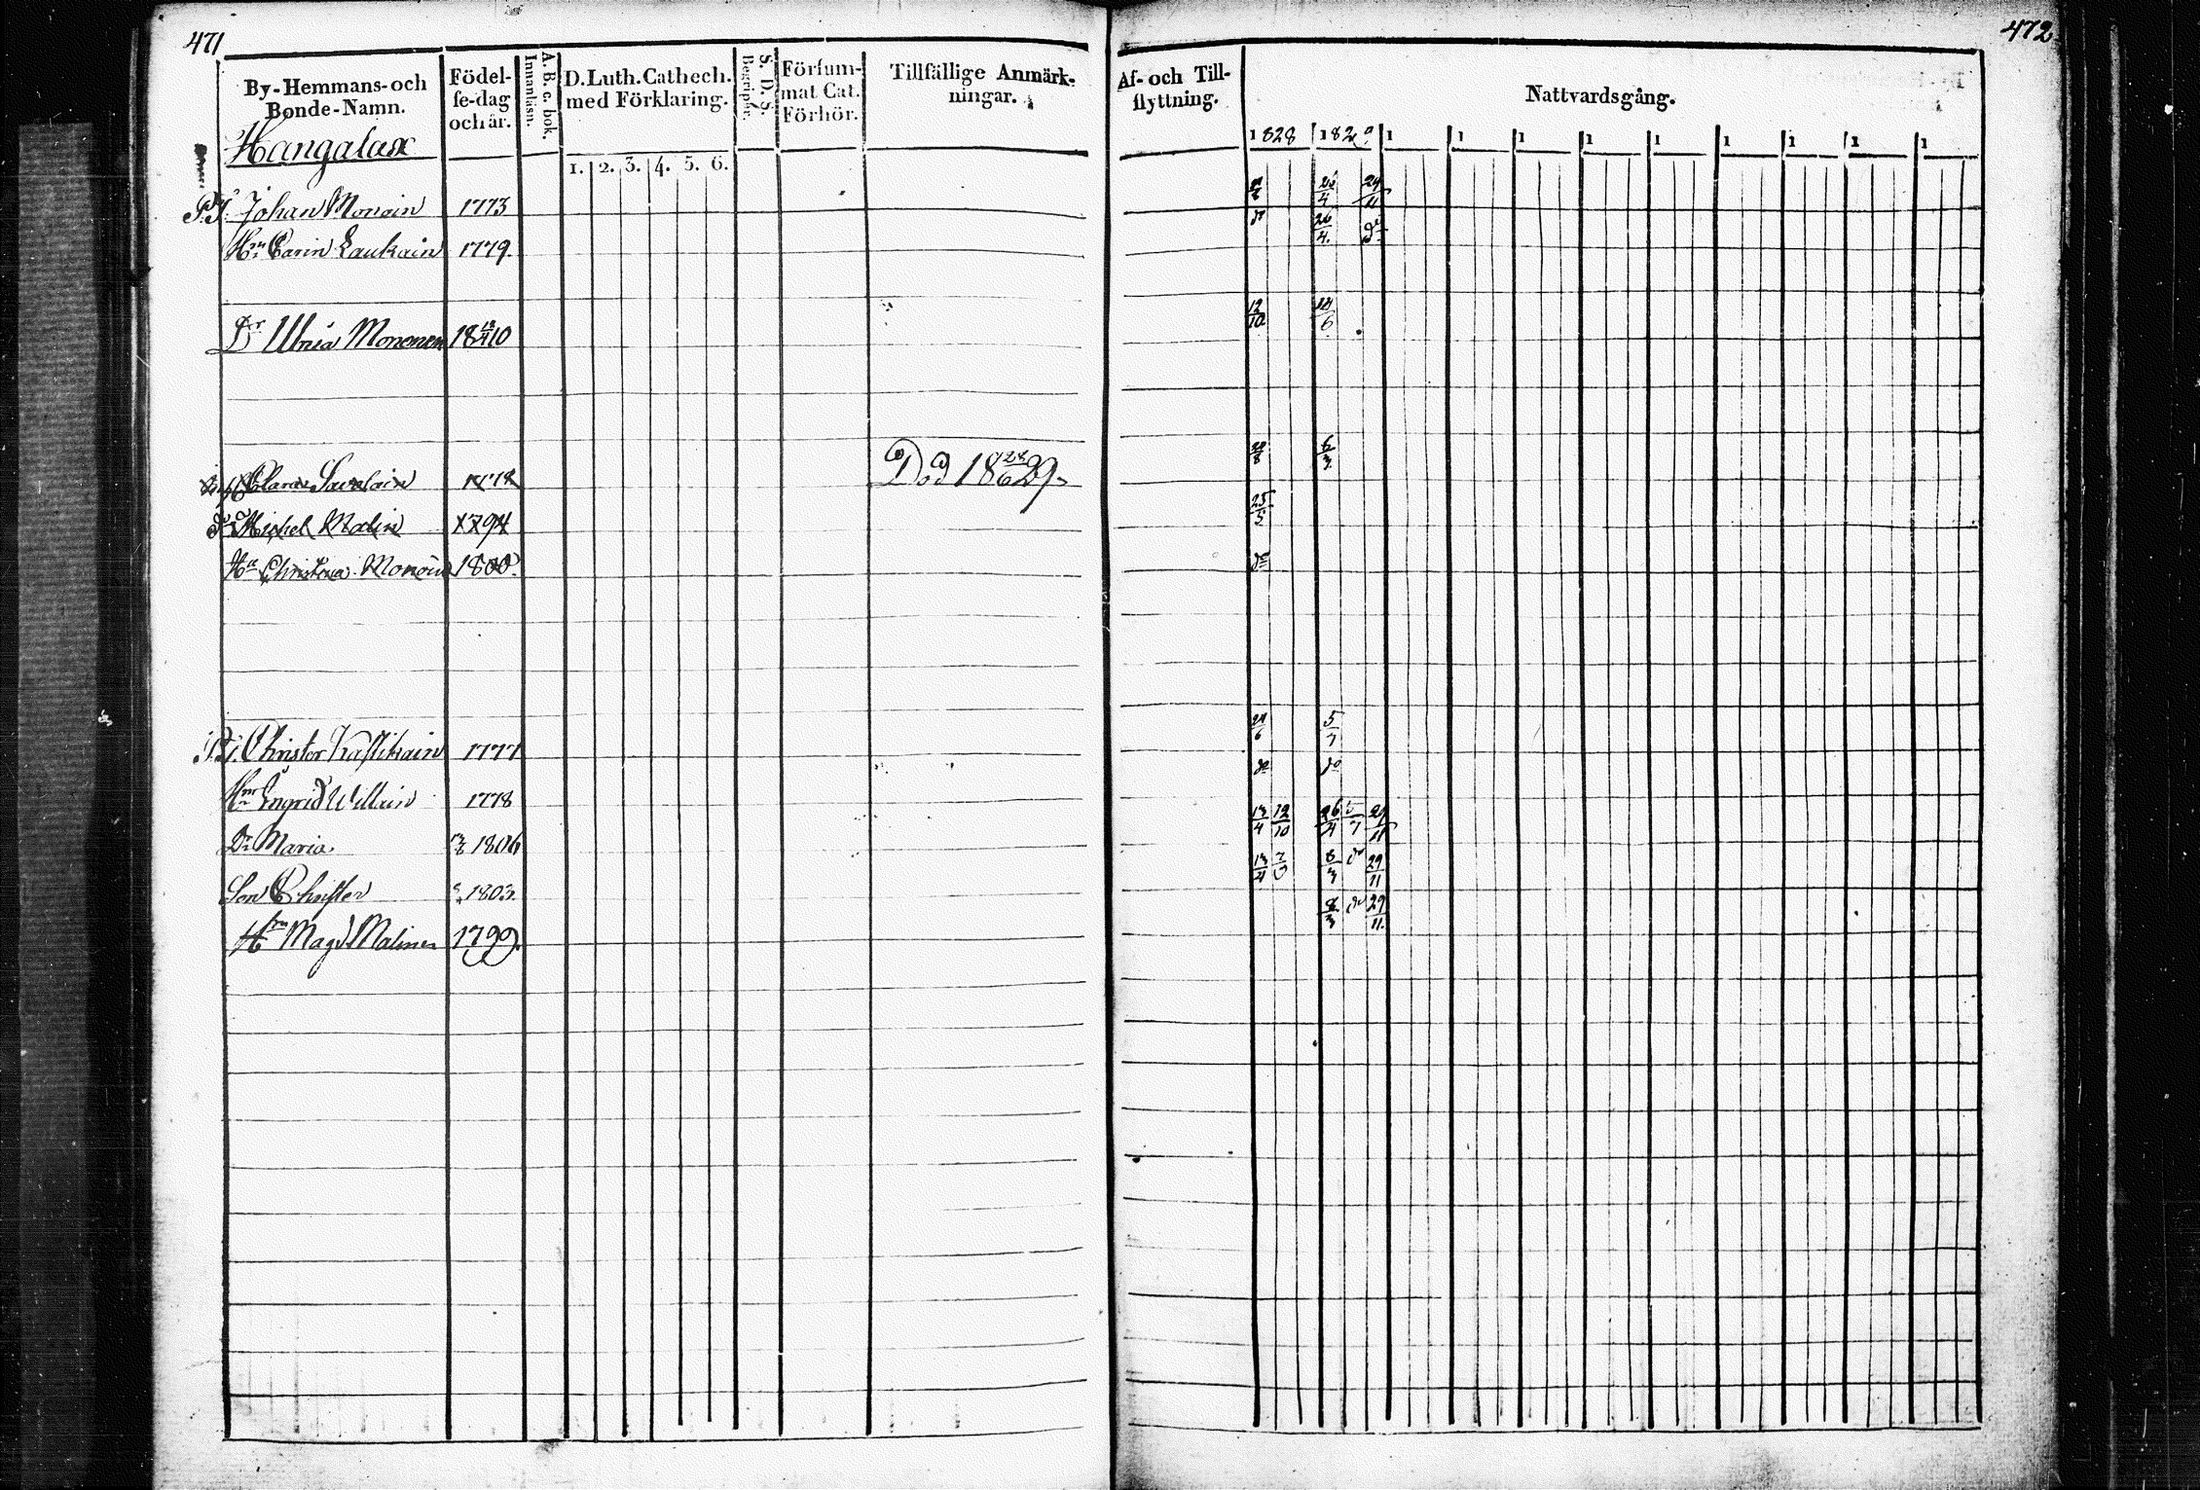 471
By-Hemmans-och
Bonde-Namn.
Födel-
se-dag
och år.
A. B. c. bok.
Innanläsn.
D. Luth. Cathech.
med Förklaring.
S. D. S.
Begriper.
Försum-
mat Cat.
Förhör.
Tillfällige Anmärk-
ningar.
Hangalax
1. 2. 3. 4. 5. 6.
Johan Monoin 1773
Hu Carin Laukain 1779.
Dr Ulrica Mononen 18 10
Clara Savolain 1778 Död 18 28/6 29.
Michel Malin 1794
Hu Christina Monoin 1800.
Christer 1777
Hu Ingrid Willain 1778
Dr Maria 1806
Son Christer 1803.
Hu Magd. Malinen 1799.
472
Af- och Till-
flyttning.
Nattvardsgång.
1828 1829 1 1 1 1 1 1 1 1 1
24/11
26/4. do
12/10 14/6
6/3
25/5
do
5/7
do do
13/4 12/10 26/4 5/7 29/11
13/4 8/3 do 29/11
8/3 do 29/11.